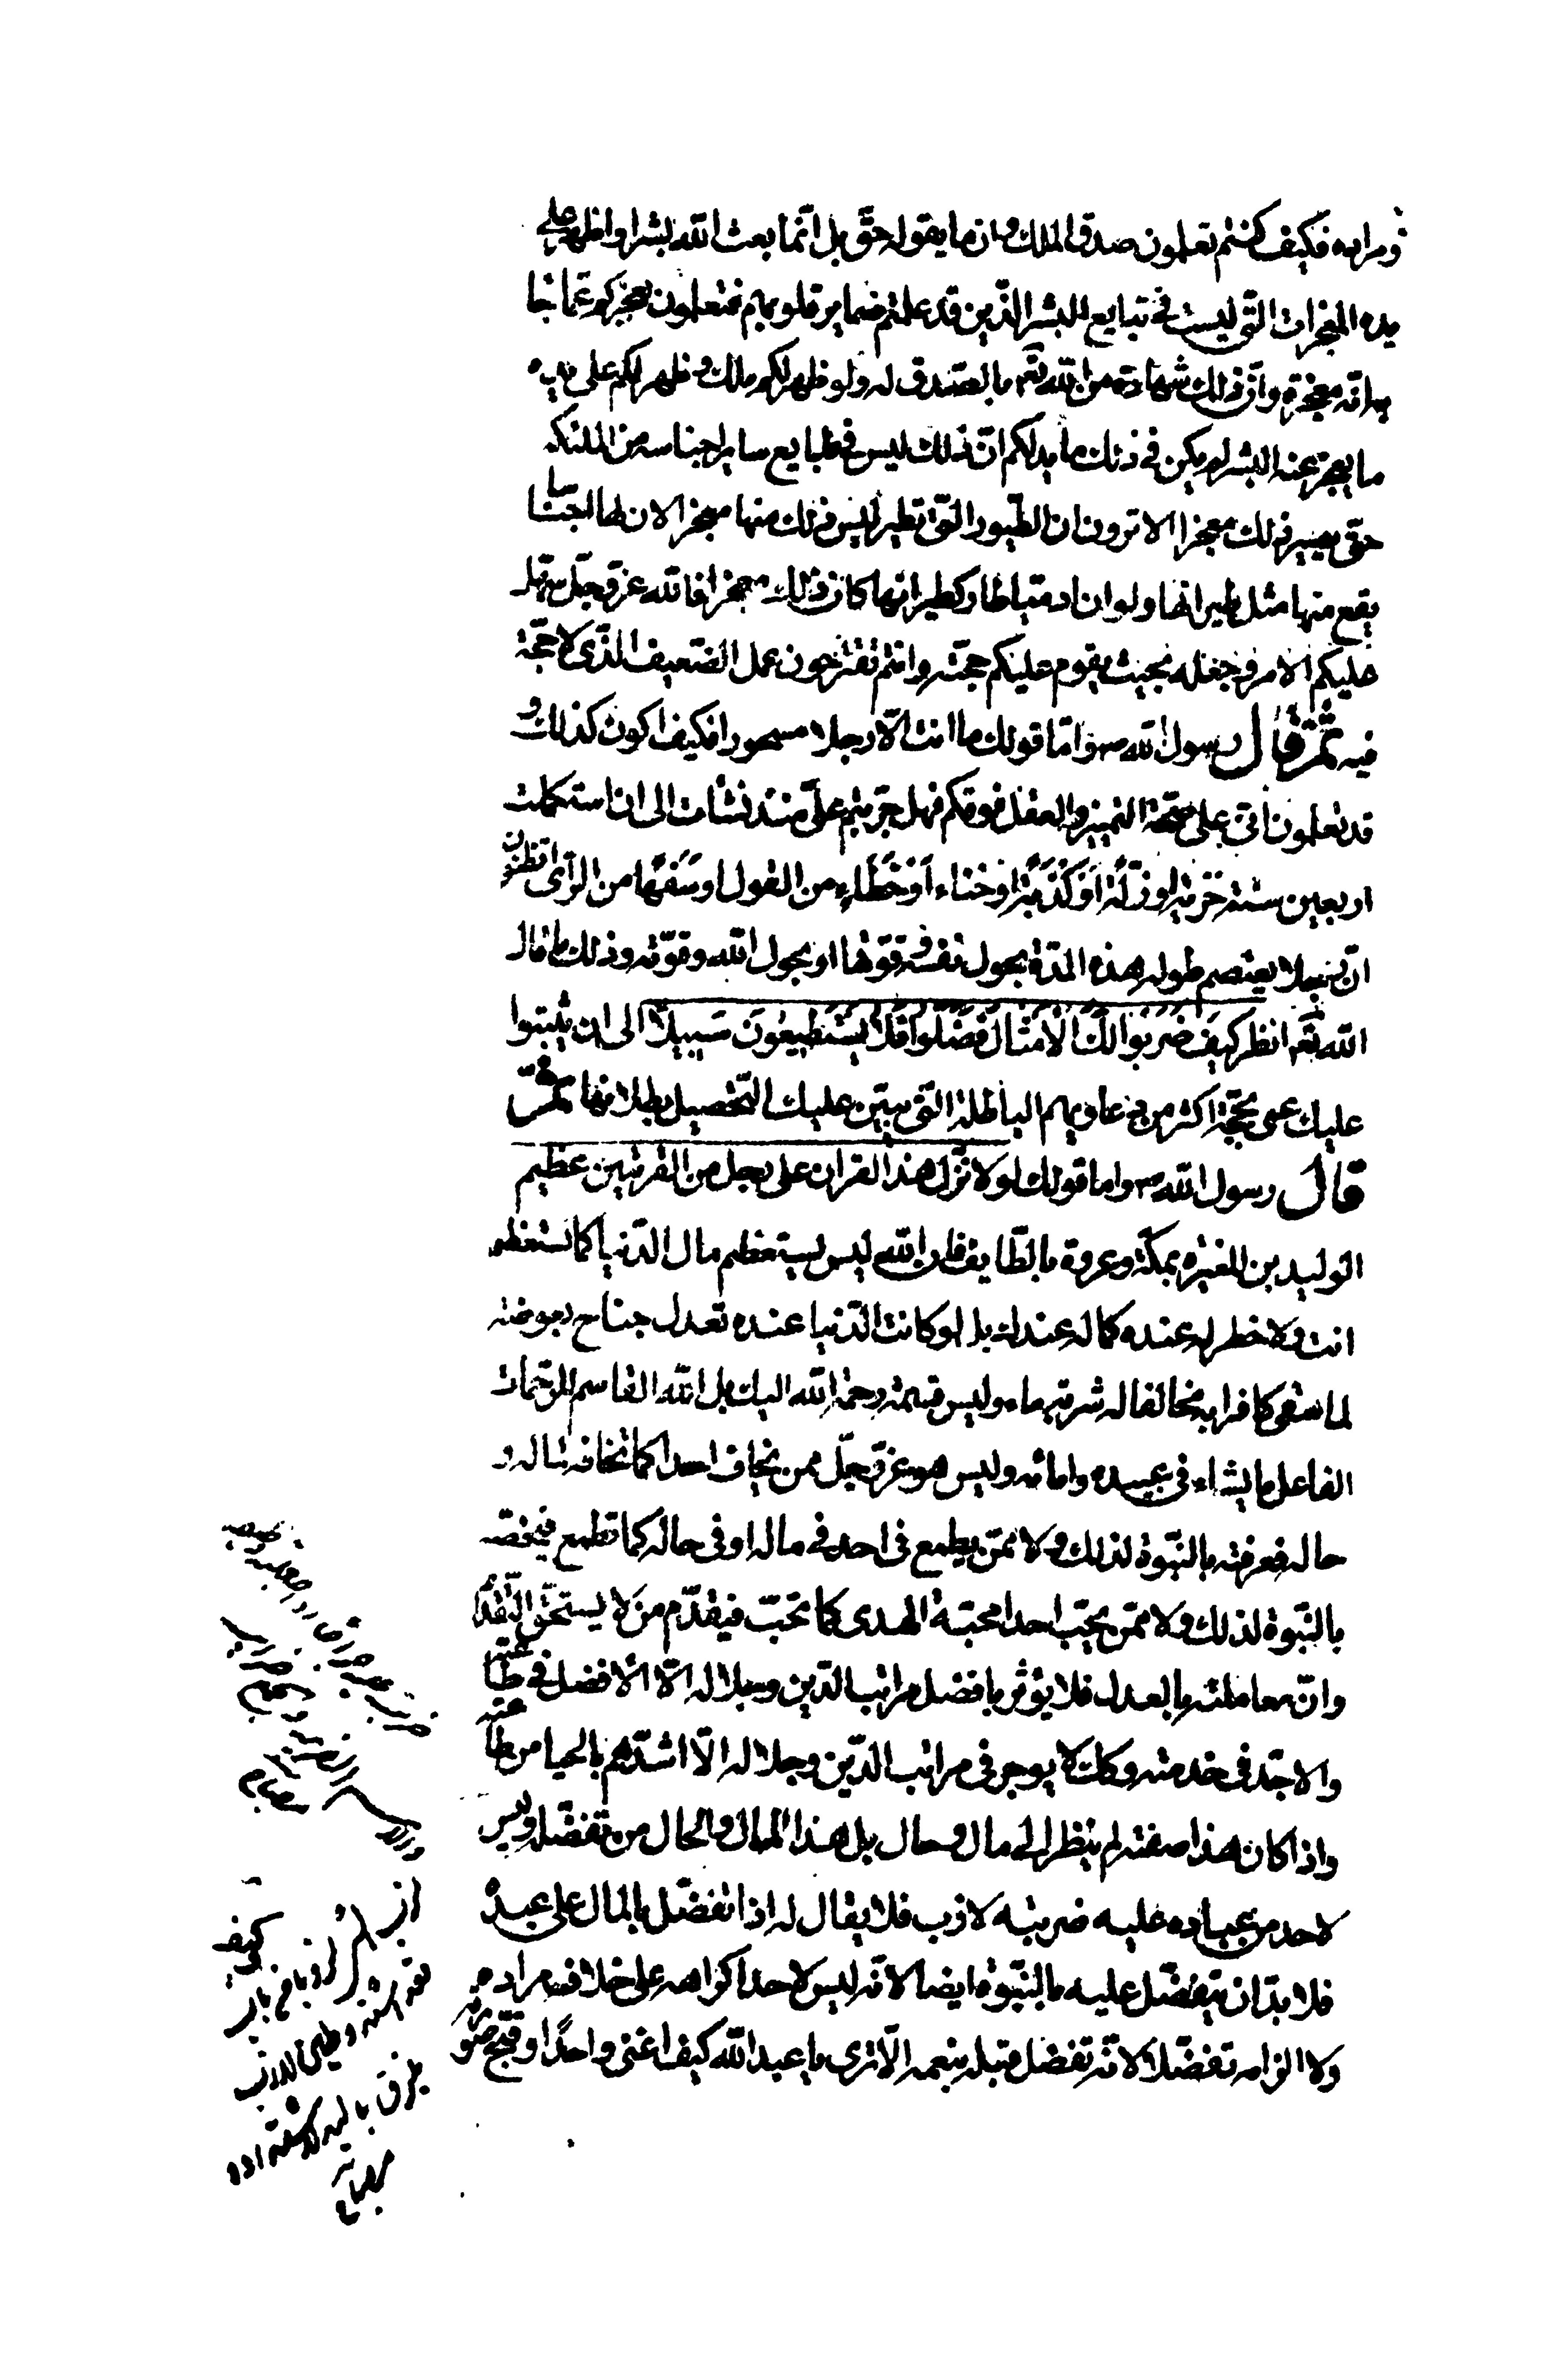 ومراده فكيف كنتم تعلمون صدق الملك وان ما يقوله حق بل انّما بعث الله بشرا واظهر على
يده المعجزات التى ليست فى تبايع البشر الذين قد علمتم ضماير قلوبهم فتعلمون بعجزكم عما جا
به انه معجزة وانّ ذلك شهادة من الله تعم بالصّدق له ولو ظهر لكم ملك وظهر لكم على يده
ما يعجز عنه البشر لم يكن فى ذلك ما يدلكم انّ ذلك ليس فى طبايع ساير اجناسه من الملئكه
حتّى يصير ذلك معجزا الا ترون ان الطّيور التّى تطير ليس ذلك منها معجز الان لها اجناسا
يقع منها مثل طيرانها ولو ان ادميّا طار كطيرانها كان ذلك معجزا فالله عزّ وجلّ سهّل
عليكم الامر وجعله بحيث يقوم عليكم حجّته وانتم تقترحون عمل الضّعيف الّذى لا حجّة
فيه ثمّ قال رسول الله ص وامّا قولك ما انت الّا رجلا مسحورا فكيف اكون كذلك و
قد تعلمون انّى على صحّة التميز والعقل فوقكم فهل جرّبتم علىّ منذ نشأت الى ان استكملت
اربعين سنة خزية او زلّة او كَذْبَة او خناء او خَطَاءٍ من القول او سَفَهًا من الرّاى اتظنّون
انّ رجلا يعتصم طول هذه المدّة بحول نفسه وقوّتها او بحول الله وقوّته وذلك ما قال
الله تعم انظر كَيفَ ضَرَبُوا لَكَ الْاَمْثَالَ فَضَلّوا فَلَا يَسْتَطيعُونَ سَبِيلًا الى ان يثبتوا
عليك عمى بحجّة اكثر من دعاويهم الباطلة التّى يبيّن عليك التّحصيل بطلانها ثمّ
قال رسول الله ص واما قولك لولا نُزّل هذا القران على رجل من القريتين عظيم
الوليد بن المغيره بمكّة وعروة بالطّايف فان الله ليس يستعظم مال الدّنيا كما تستعظم
انت ولا خطر له عنده كما له عندك بل لو كانت الدّنيا عنده تعدل جناح بعوضه
لما سقى كافرا به مخالفا له شربة ماء وليس قسمة رحمة الله اليك بل الله القاسم للرّحمات
الفاعل ما يشاء فى عبيده وامائه وليس هو عزّ وجلّ ممن يخاف احدا كما تخافه لماله و
حاله فعرفته بالنّبوّة لذلك ولا ممّن يطمع فى احد فى ماله او فى حاله كما تطمع فتخصّه
بالنّبوة لذلك ولا ممّن يحبّ احدا محبّة الهدى كما تحبّ فيقدّم من لا يستحقّ التّقدّم
وانّ معاملته بالعدل فلا يؤثر بافضل مراتب الدّين وجلاله الّا الافضل فى طاعته
والاجدّ فى خدمته وكك لا يوخر فى مراتب الدّين وجلاله الّا اشدّهم بالحيا من طاعته
واذا كان هذا صفته لم ينظر الى مال وحال بل هذا المال والحال من تفضّله وليس
لاحد من عباده عليه ضريبة لازب فلا يقال له اذا تفضّل بالمال على عبده
فلا بدّ ان يتفضّل عليه بالنّبوّة ايضا لانّه ليس لاحد اكراهه على خلاف مراده
ولا الزامه تفضّلا لانّه تفضل قبله بنعمه الا ترى يا عبد الله كيف اغنى واحدًا وقبّح صورته